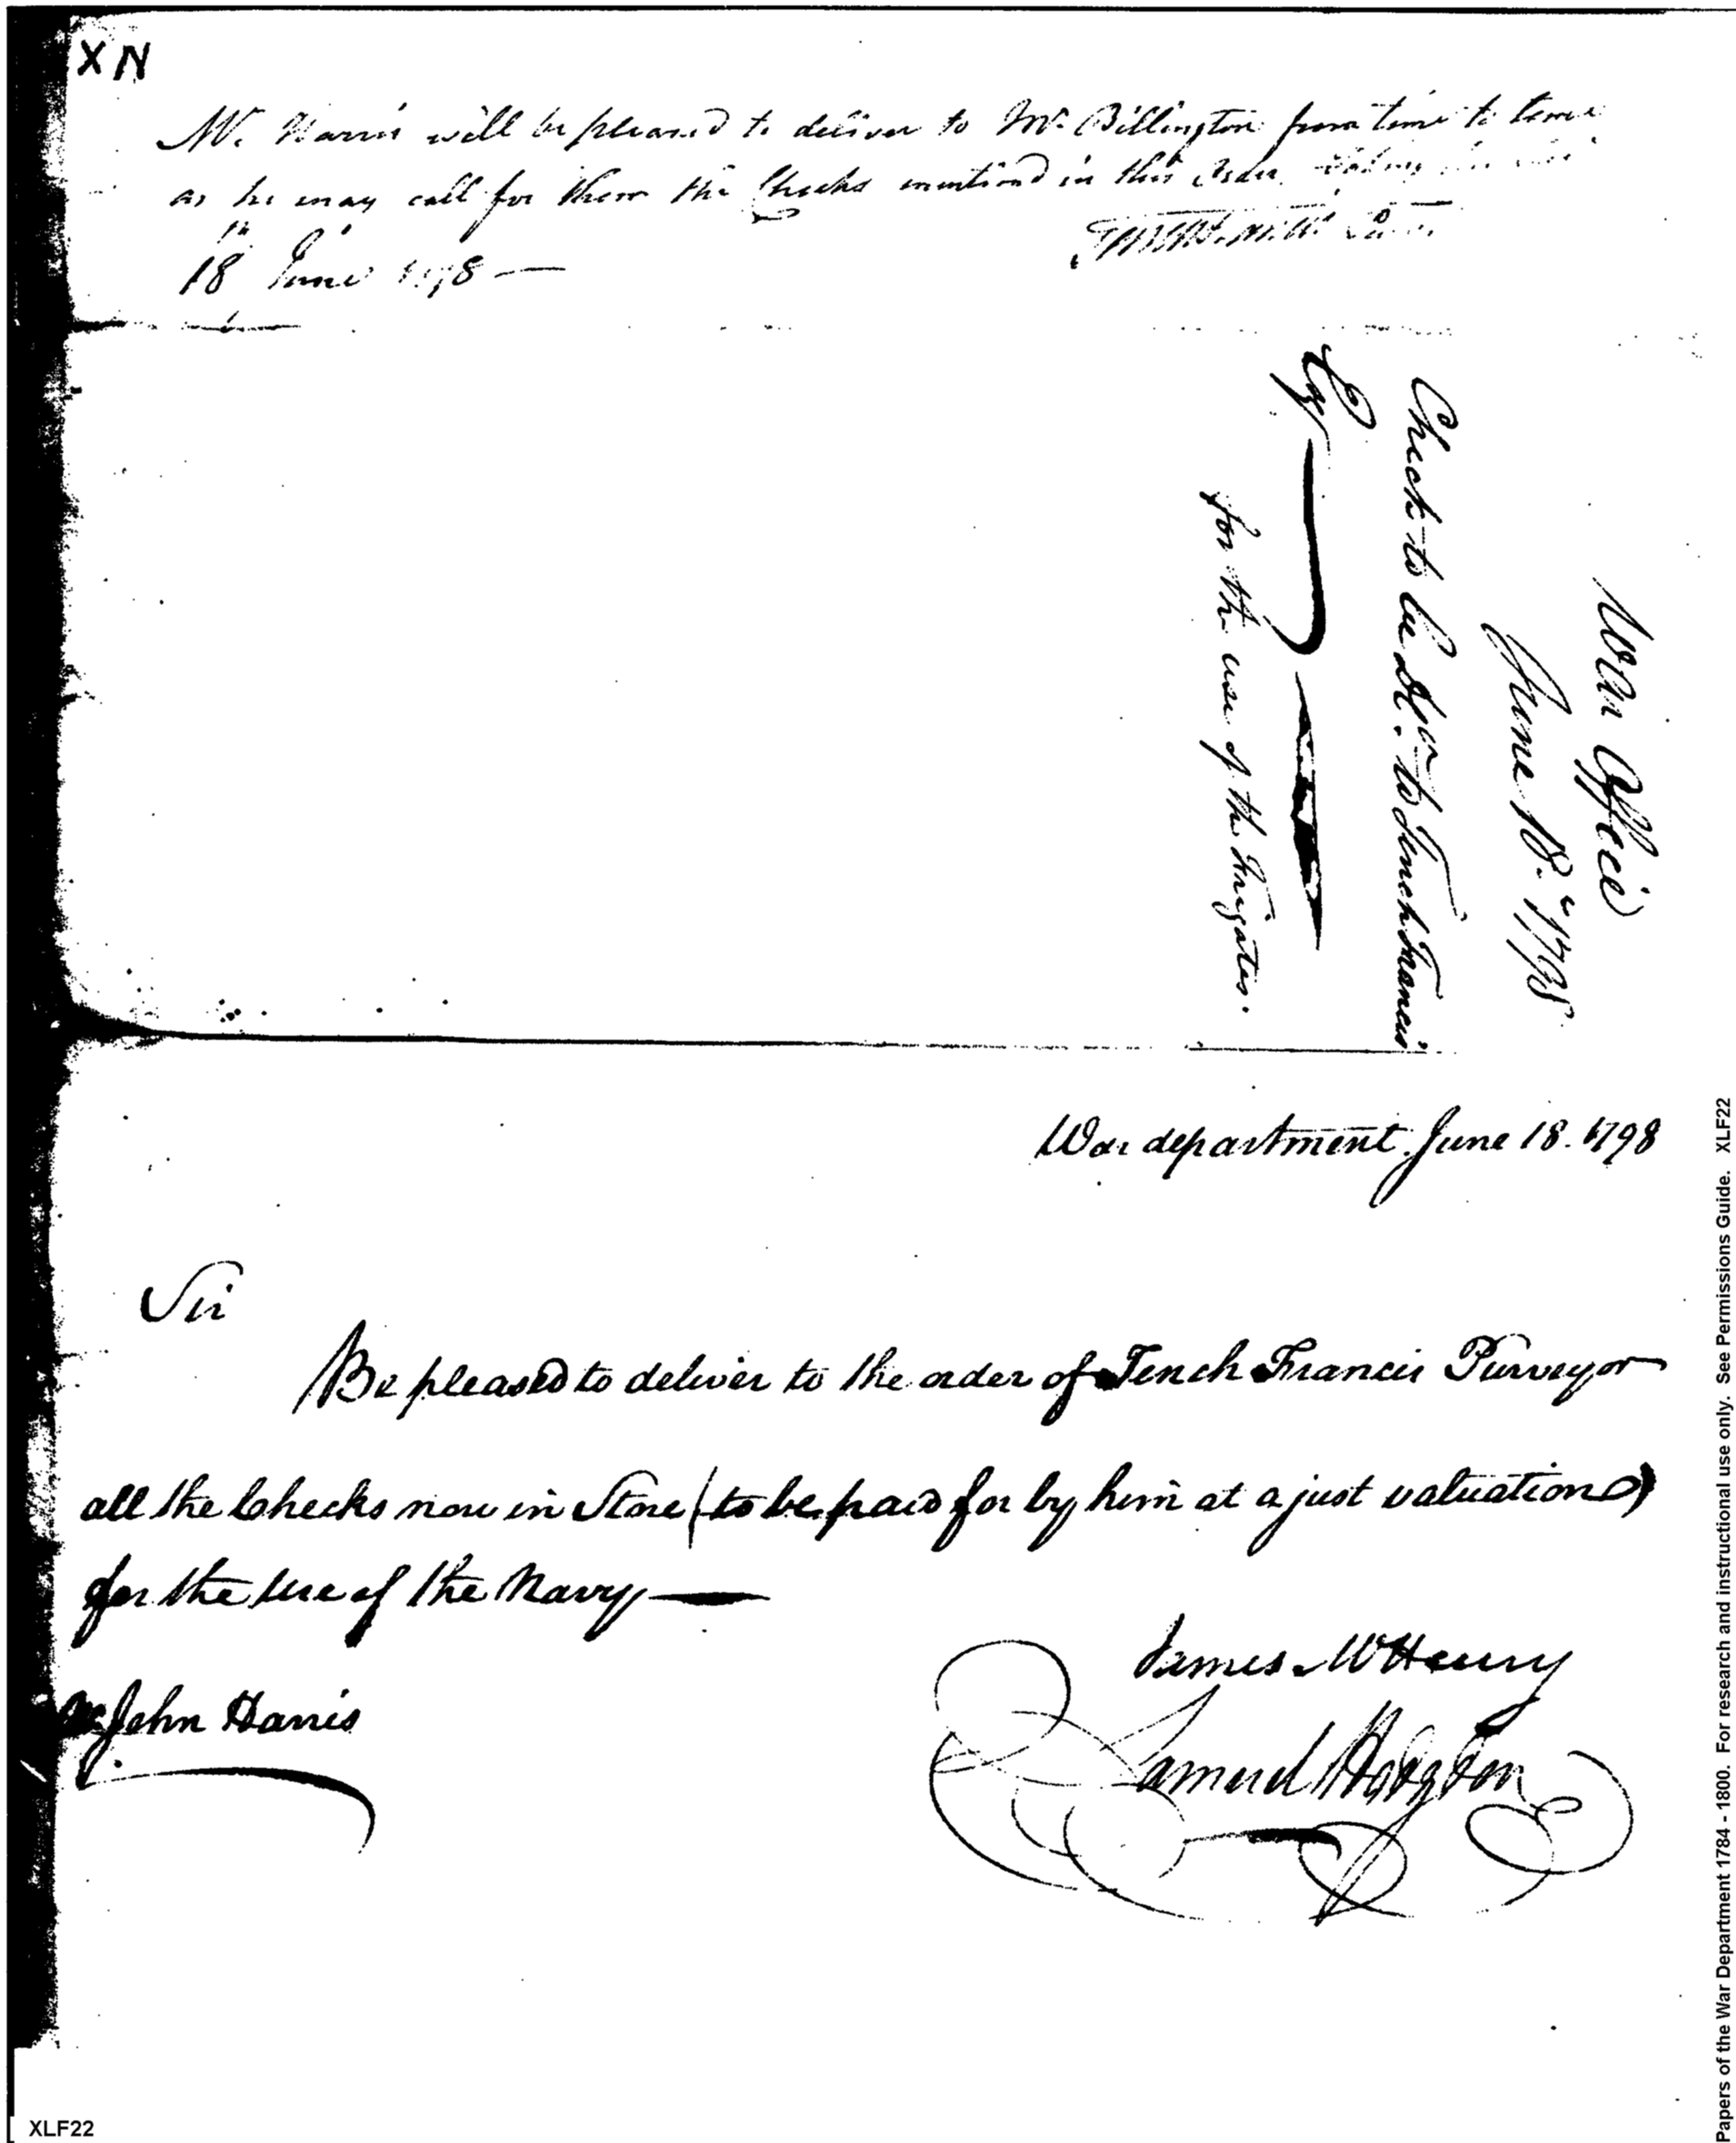 XN
Mr. Harris will be pleased to deliver to Mr. Billington from time to time
as he may call for them the Checks mentiond in this Order
18th June 1798 —
War Office
June 18. 1798
Checks to be d to Tench Francis
Esqr
for the use of the Frigates.
War department June 18. 1798
Sir
Be pleased to deliver to the order of Tench Francis Purveyor
all the Checks now in Store (to be paid for by him at a just valuation)
for the use of the Navy —
James McHenry
Mr. John Harris
Samuel Hodgdon
Papers of the War Department 1784 - 1800. For research and instructional use only. See Permissions Guide. XLF22
XLF22